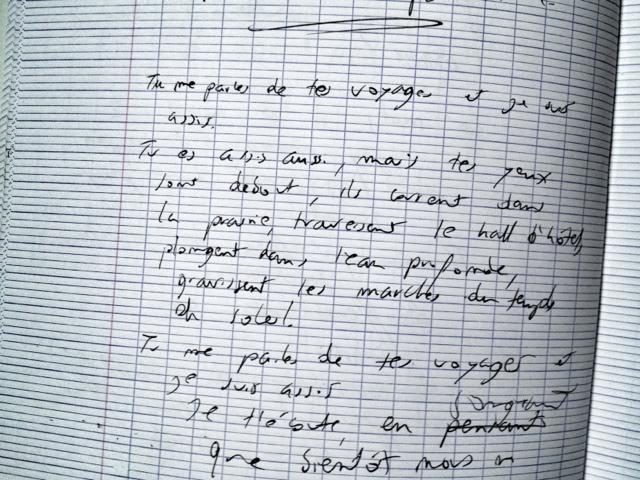 Tu me parles de tes voyages et je suis
assis.
Tu es assis aussi, mais tes yeux
sont debout, ils courent dans
la prairie, traversent le hall d'hôtel,
plongent dans l'eau profonde,
gravissent les marches du temple
du soleil.
Tu me parles de tes voyages et
je suis assis
songeant
Je t'écoute, en pensant
que bientôt nous